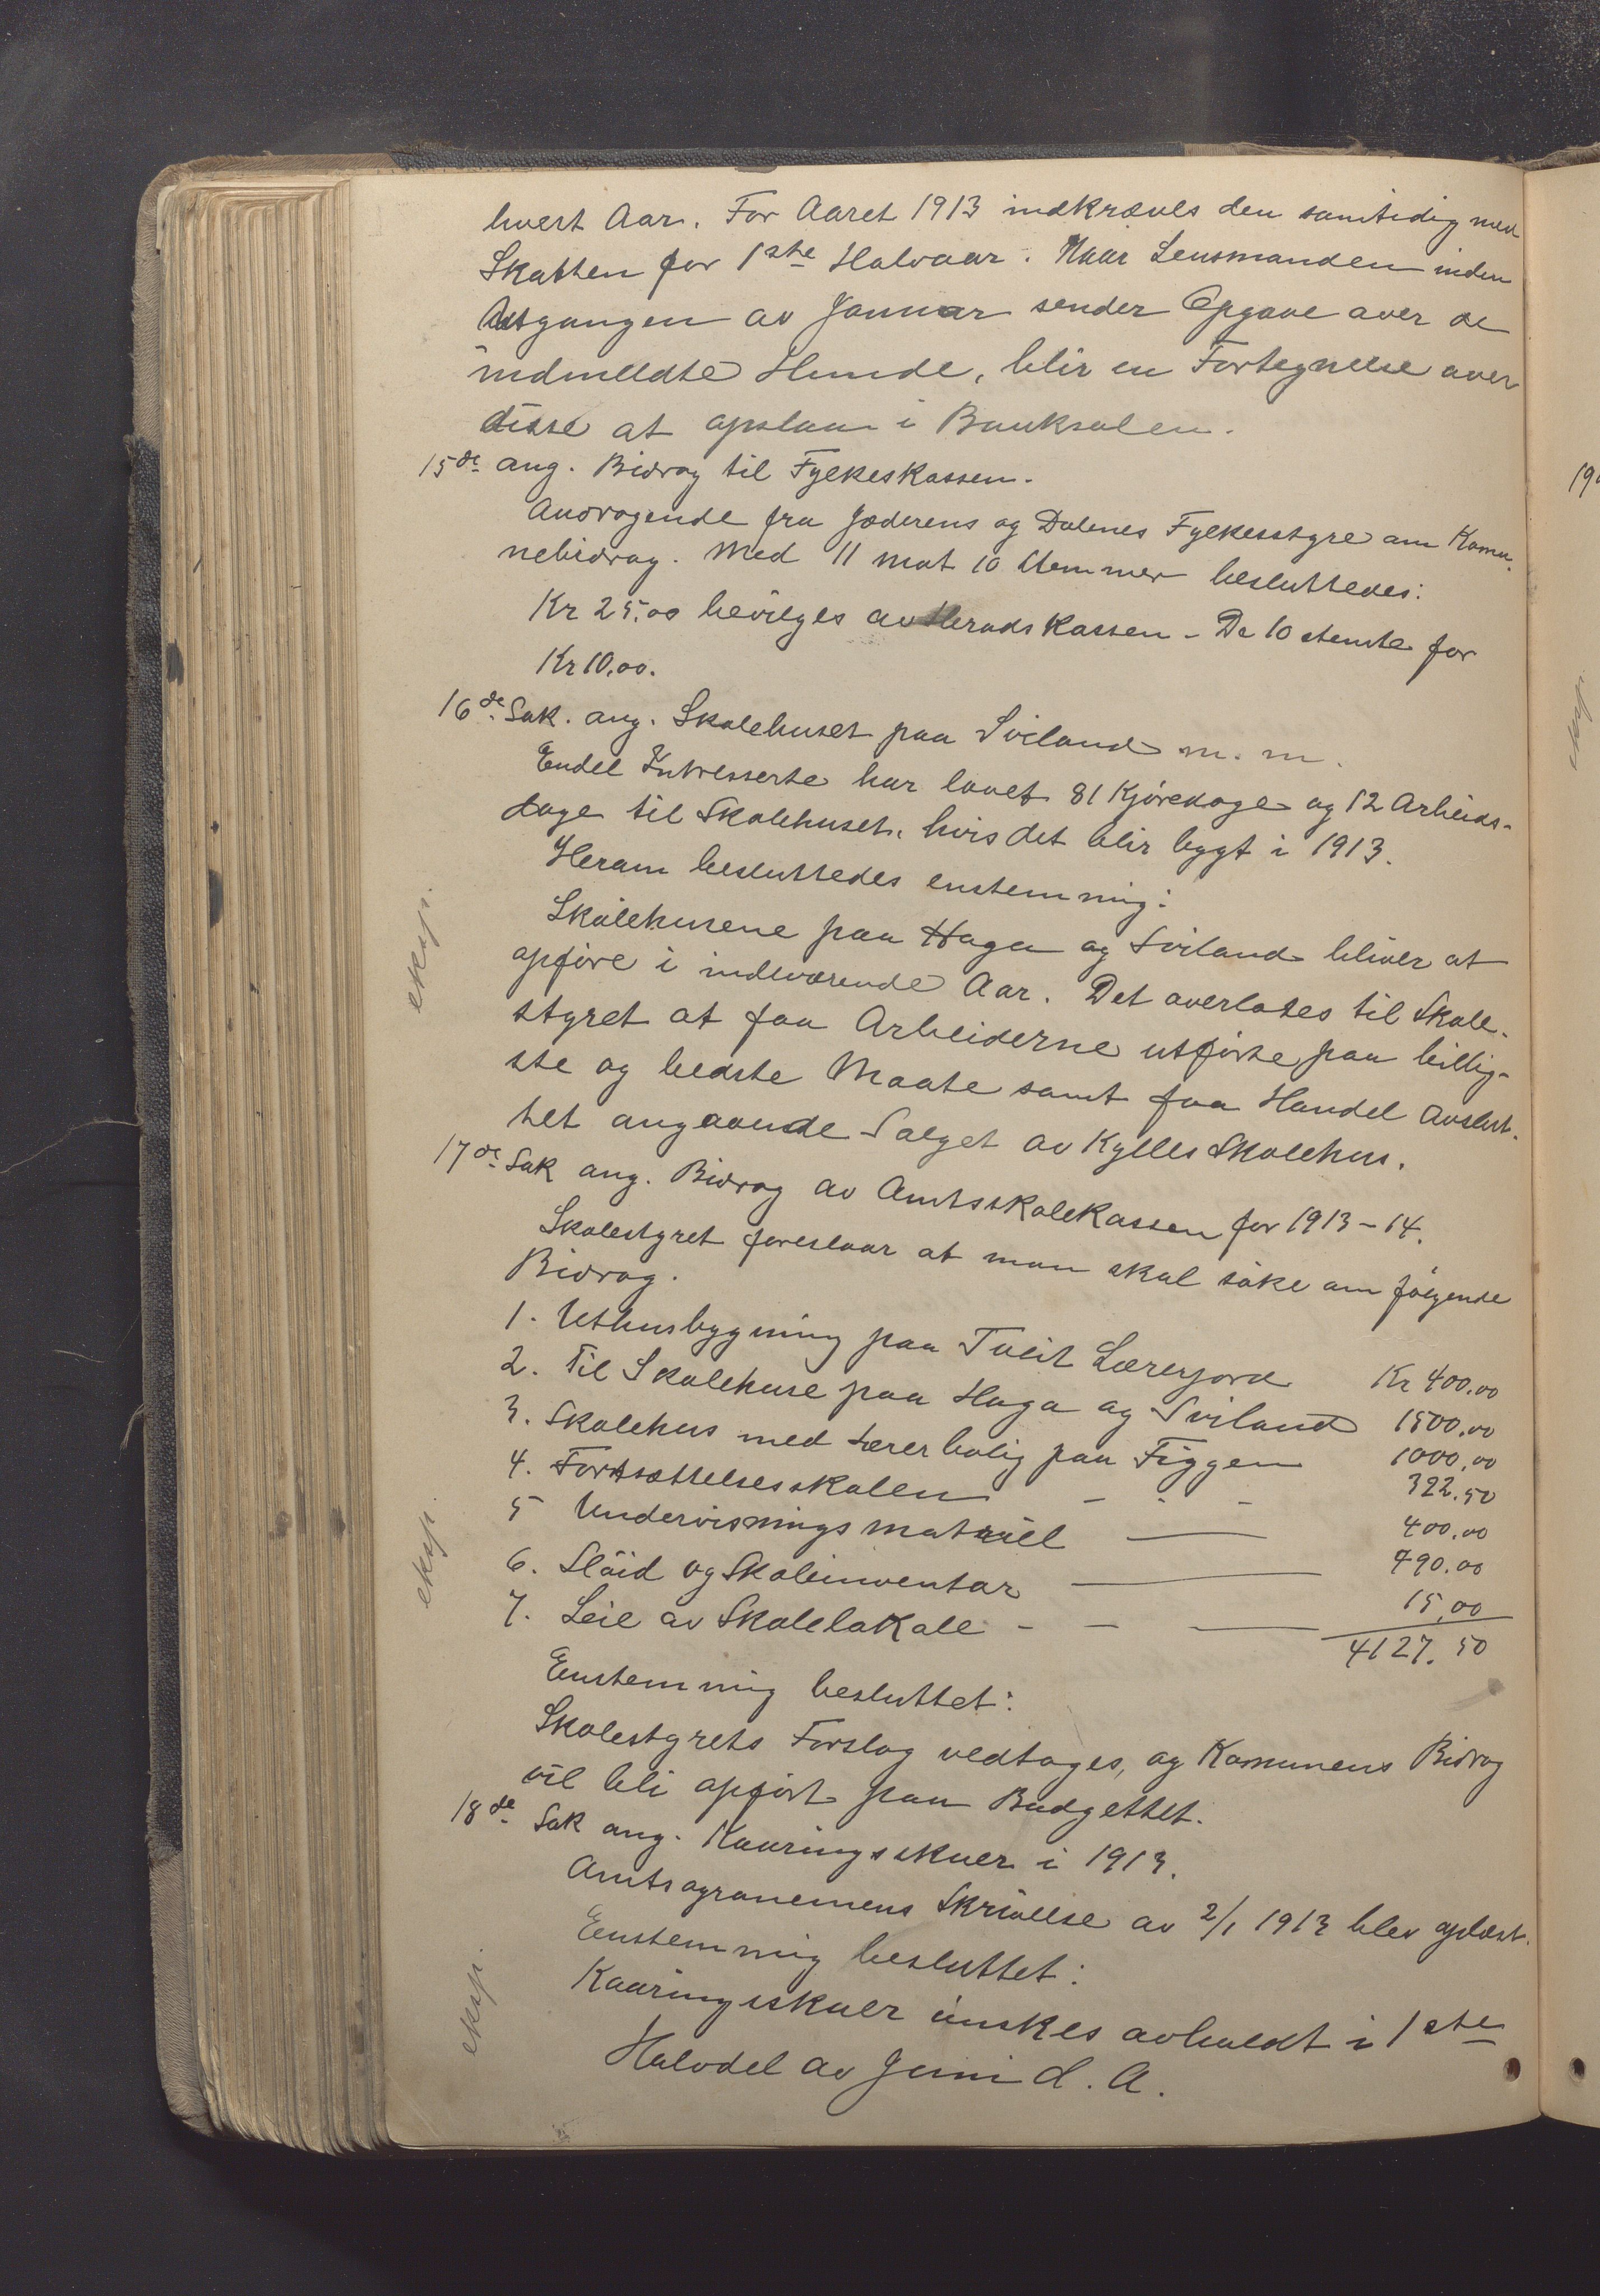 hvert Aar. For Aaret 1913 indkræves den samtidig med
Skatten for 1ste Halvaar. Naar Lensmanden inden
Utgangen av Januar sender Opgave over de
indmeldte Hunde, blir en Fortegnelse over
disse at opslaa i Banksalen.
15de ang. Bidrag til Fylkeskassen.
Andragende fra Jæderens og Dalenes Fylkesstyre om Komu-
nebidrag. Med 11 mot 10 Stemmer besluttedes:
Kr 25.00 bevilges av Heradskassen - De 10 stemte for
Kr 10.00.
16de Sak. ang. Skolehuset paa Sviland m. m.
Endel Intresserte har lovet 81 Kjøredage og 12 Arbeids-
dage til Skolehuset, hvis det blir bygt i 1913.
Herom besluttedes enstemmig:
Skolehusene paa Haga og Sviland bliver at
opføre i indeværende Aar. Det overlates til Skole-
styret at faa Arbeiderne utførte paa billig-
ste og bedste Maate samt faa Handel avslut-
tet angaaende Salget av Kylles Skolehus.
17de Sak ang. Bidrag av Amtsskolekassen for 1913-14.
Skolestyret foreslaar at man skal søke om følgende
Bidrag.
1. Uthusbygning paa Tveit Lærerjord Kr 400.00
2. Til Skolehuse paa Haga og Sviland 1500.00
3. Skolehus med Lærerbolig paa Figgen 1000.00
4. Fortsættelsesskolen - - - 322.50
5 Undervisningsmatriel — 400.00
6. Sløid og Skoleinventar — 490.00
7. Leie av Skolelokale - - — 15.00
4127.50
Enstemmig besluttet:
Skolestyrets Forslag vedtages, og Komunens Bidrag
vil bli opført paa Budgettet.
18de Sak ang. Kaaringsskuer i 1913.
Amtsagronomens Skrivelse av 2/1 1913 blev oplæst.
Enstemmig besluttet:
Kaaringsskuer ønskes avholdt i 1ste
Halvdel av Juni d. A.
eksp.
eksp.
eksp.
eksp.